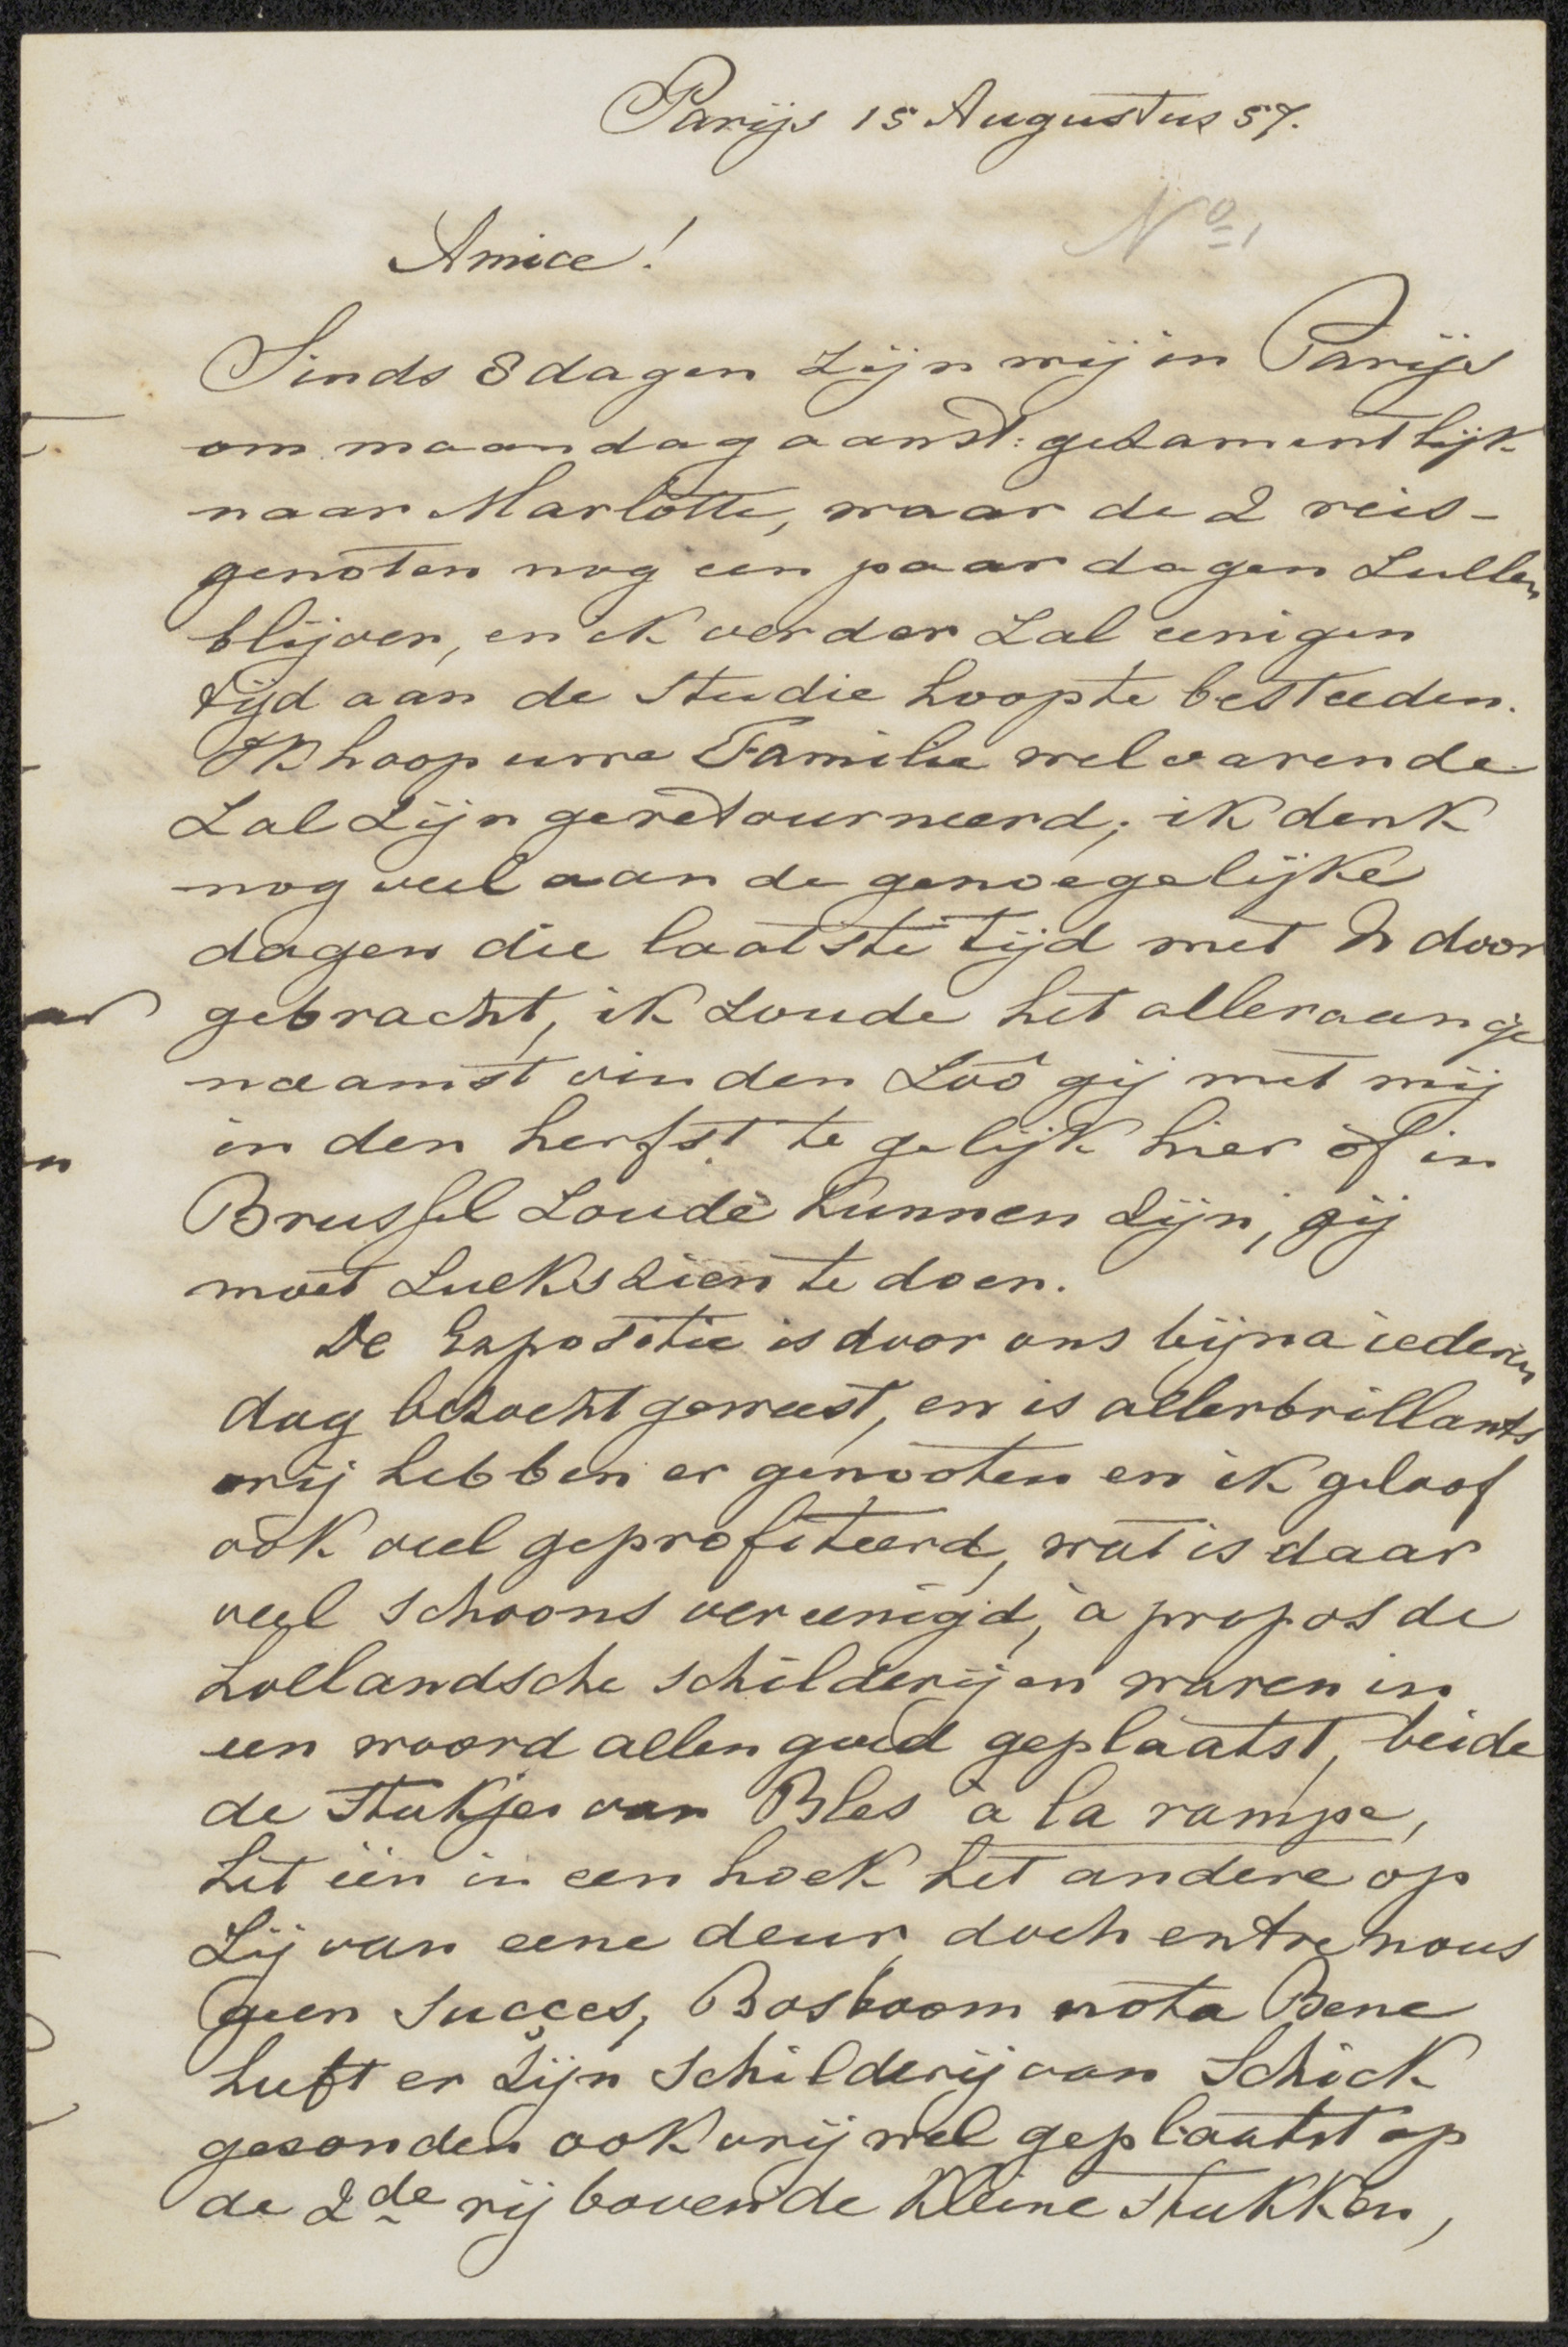 Parijs 15 Augustus 57.
No 1
Amice!
Sinds 8 dagen zijn wij in Parijs
om maandag aanst: gezamentlijk
naar Marlotte, waar de 2 reis-
genoten nog een paar dagen zullen
blijven, en ik verder zal eenigen
tijd aan de studie hoop te besteeden.
Ik hoop uwe Familie welvarende
zal zijn geretourneerd; ik denk
nog veel aan de genoegelijke
dagen die laatste tijd met U door
gebracht, ik zoude het alleraange
naamst vinden zoo gij met mij
in den herfst te gelijk hier òf in
Brussel zoude kunnen zijn, gij
moet zulks zien te doen.
De Expositie is door ons bijna iederen
dag bezocht geweest, en is allerbrillants
wij hebben er genooten en ik geloof
ook veel geprofiteerd, wat is daar
veel schoons vereenigd, à propos de
hollandsche schilderijen waren in
een woord allen goed geplaatst, beide
de stukjes van Bles à la rampe,
het één in een hoek het andere op
zij van eene deur, doch entre nous
geen succes, Bosboom nota Bene
heeft er zijn schilderij van Schick
gezonden ook vrij wel geplaatst op
de 2de rij boven de kleine stukken,